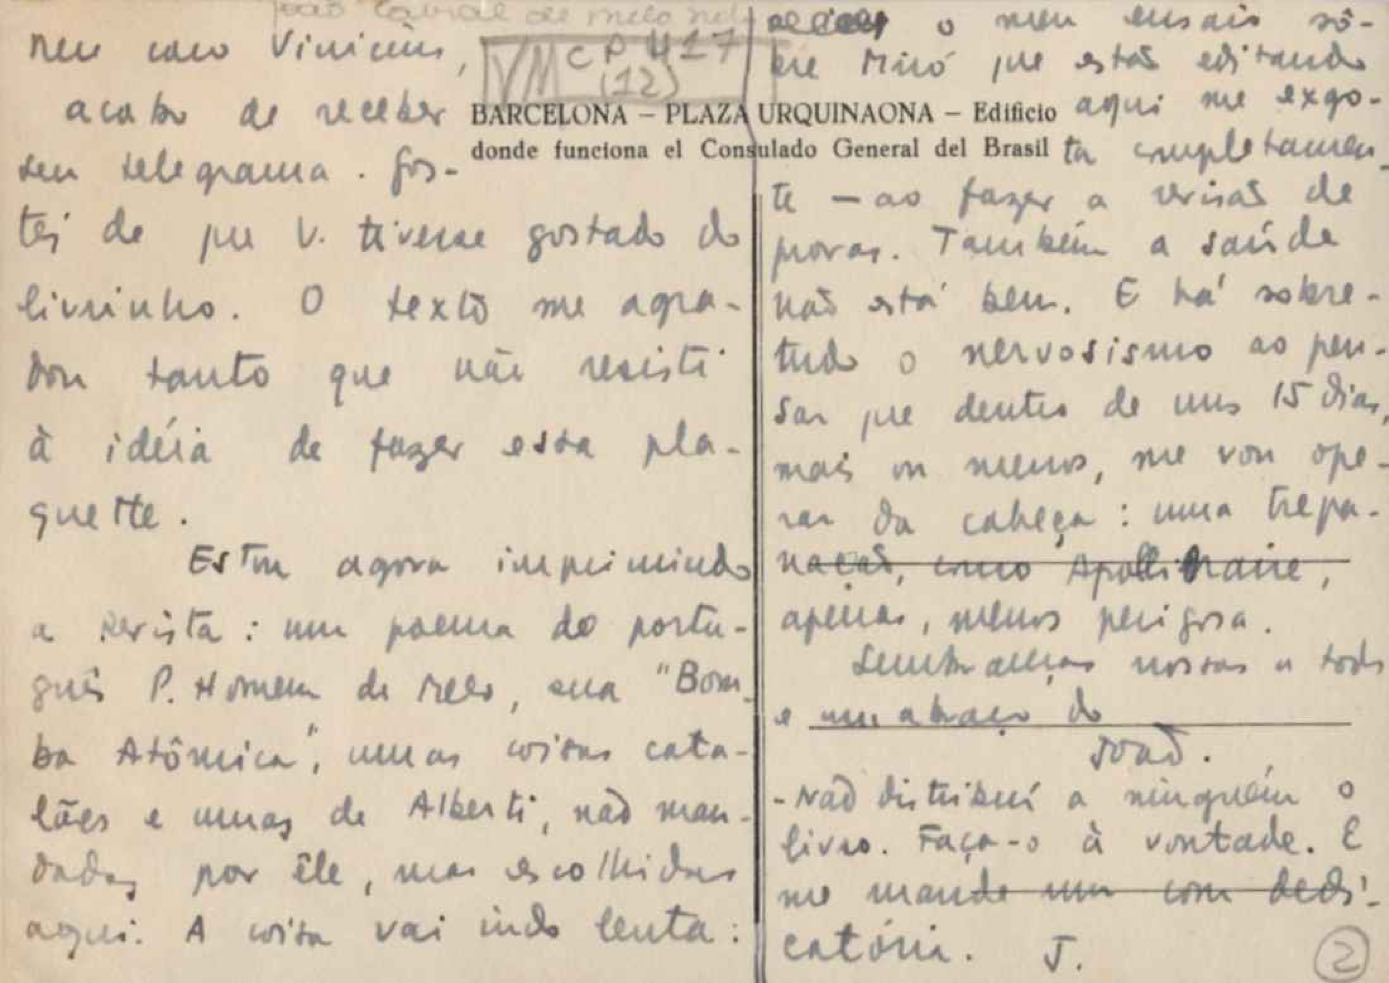 João Cabral de Melo Neto
VM CP 417
(12)
BARCELONA – PLAZA URQUINAONA – Edificio
donde funciona el Consulado General del Brasil
Meu caro Vinicius,
acabo de receber
seu telegrama. Gos-
tei de que V. tivesse gostado do
livrinho. O texto me agra-
dou tanto que não resisti
à idéia de fazer essa pla-
quette.
Estou agora imprimindo
a revista: um poema do portu-
guês P. Homem de Melo, sua "Bom-
ba Atômica", umas coisas cata-
lães e umas de Alberti, não man-
dadas por êle, mas escolhidas
aqui. A coisa vai indo lenta:
o meu ensaio sô-
bre Miró que estão editando
aqui me exgo-
ta completamen-
te — ao fazer a revisão de
provas. Também a saúde
não está bem. E há sobre-
tudo o nervosismo ao pen-
sar que dentro de uns 15 dias,
mais ou menos, me vou ope-
rar da cabeça: uma trepa-
nação, como Apollinaire,
apenas, menos perigosa.
Lembranças nossas a todos
e um abraço do
João.
- Não distribuí a ninguém o
livro. Faça-o à vontade. E
me mande um com dedi-
catória. J.
2